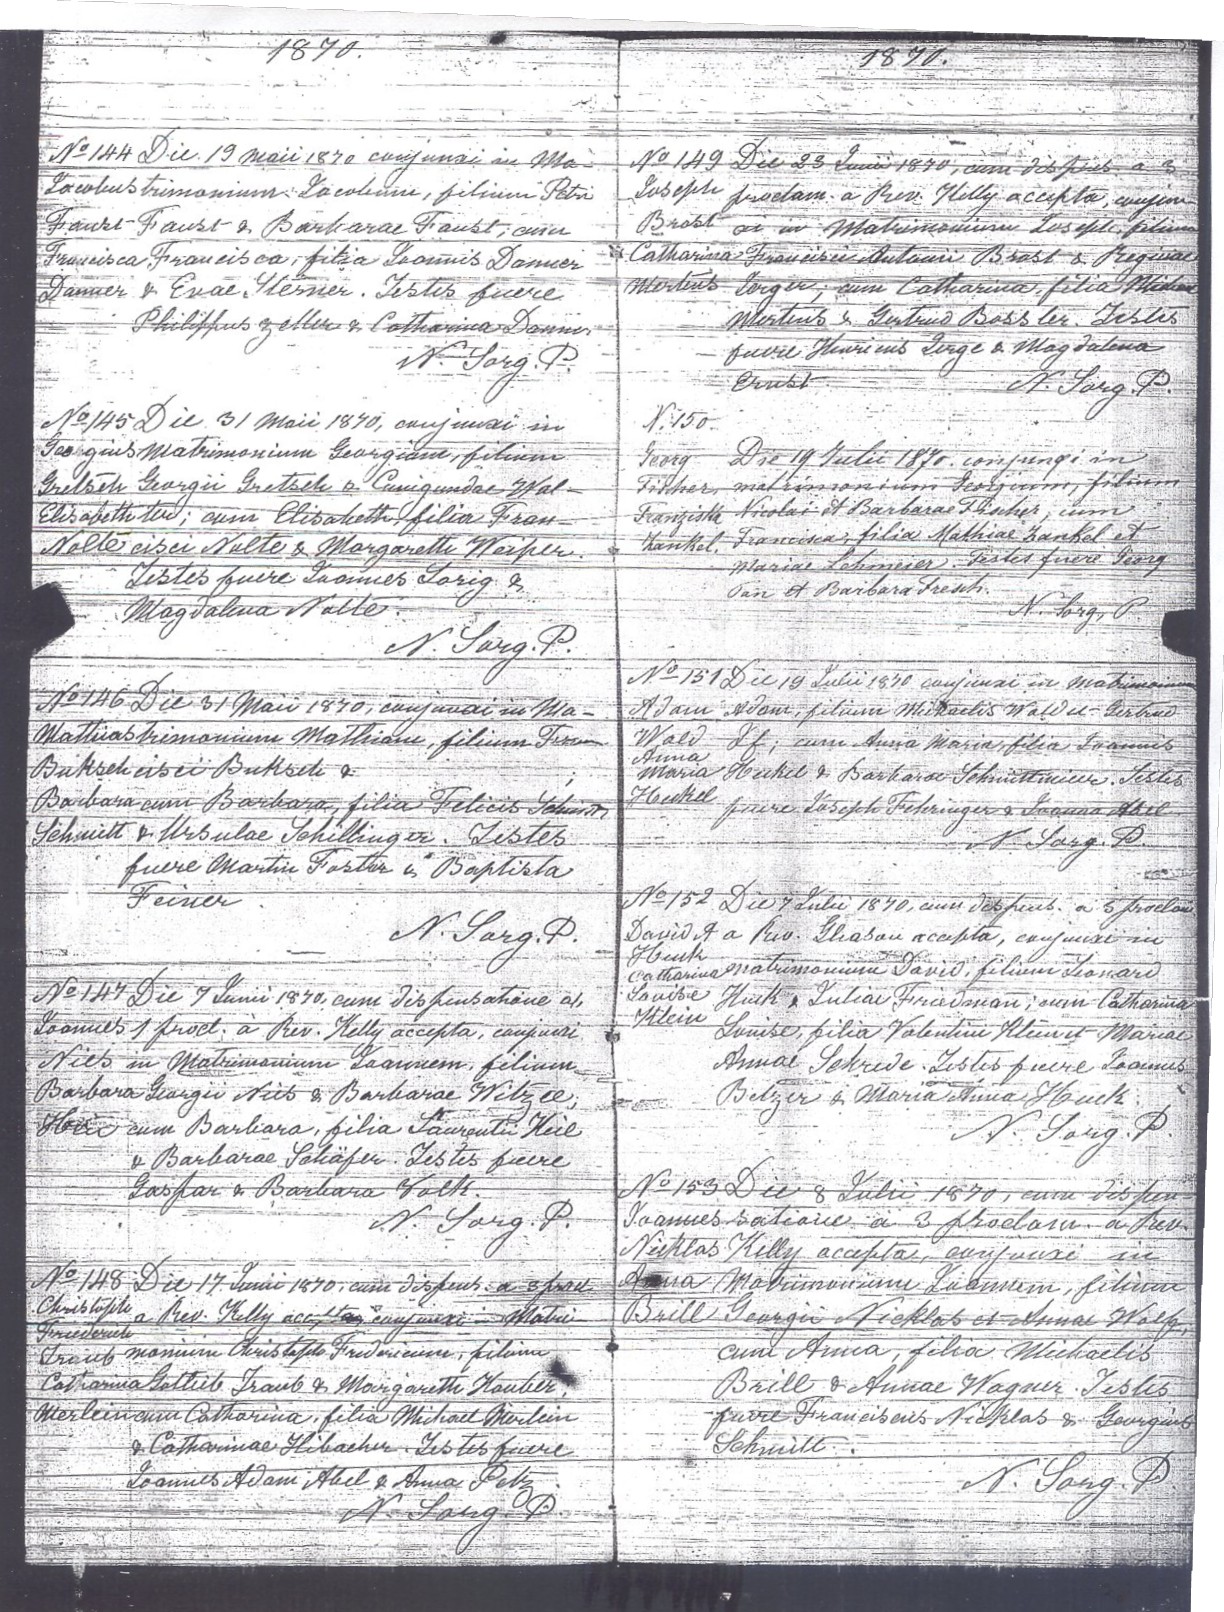 1870.
No 144 Die 19 Maii 1870 conjunxi in Ma-
Jacobus trimonium Jacobum, filium Petri
Faust Faust & Barbarae Faust, cum
Francisca Francisca, filia Joannis Danner
Danner & Evae Sterner. Testes fuere
Philippus Zeller & Catharina Danner
N. Sorg. P.
No 145 Die 31 Maii 1870, conjunxi in
Georgius Matrimonium Georgium, filium
Gretsch Georgii Gretsch & Cunigundae Wal-
Elisabeth ter; cum Elisabeth, filia Fran-
Nolte cisci Nolte & Margareth Weiper.
Testes fuere Joannes Sorig &
Magdalena Nolte.
N. Sorg. P.
No 146 Die 31 Maii 1870, conjunxi in Ma-
Mathias trimonium Mathiam, filium Fran
Buksch cisci Buksch & ;
Barbara cum Barbara, filia Felicis Schmitt
Schmitt & Ursulae Schillinger. Testes
fuere Martin Foster & Baptista
Feiner.
N. Sorg. P.
No 147 Die 7 Junii 1870, cum dispensatione a
Joannes 1 procl. à Rev. Kelly accepta, conjunxi
Nies in Matrimonium Joannem, filium
Barbara Georgii Nies & Barbarae Witzel,
cum Barbara, filia Laurentii Heil
& Barbarae Schäfer. Testes fuere
Gaspar & Barbara Volk.
N. Sorg. P.
No 148 Die 17 Junii 1870, cum dispens. a 3 procl
Christoph a Rev. Kelly accepta conjunxi in Matri-
Friederich
Traub monium Christoph Fridericum, filium
Catharina Gottlieb Traub & Margareth Hauber,
Merlein cum Catharina, filia Michael Merlein
& Catharinae Hibacher. Testes fuere
Joannes Adam Abel & Anna Petz.
N. Sorg P.
1870.
No 149 Die 23 Junii 1870, cum dispens. a 3
Joseph proclam. a Rev. Kelly accepta, conjun-
Brost xi in Matrimonium Joseph, filium
Catharina Francisci Antoni Brost & Reginae
Mertens Jerger; cum Catharina, filia
Mertens & Gertrud Bossler. Testes
fuere Henricus Jerge & Magdalena
Ernst. N. Sorg. P.
N. 150.
Georg Die 19 Julii 1870. conjungi in
Fischer, matrimonium Georgium, filium
Franziska Nicolai et Barbarae Fischer, cum
Zankel. Francisca, filia Mathiae Zankel et
Mariae Lehmeier. Testes fuere Georg
et Barbara Fresch.
N. Sorg, P.
No 151 Die 19 Julii 1870 conjunxi in Matrimonium
Adam Adam, filium Michaelis Wald et Gertrud
Wald If; cum Anna Maria, filia Joannis
Anna
Maria Heckel & Barbarae Schmittmeier. Testes
Heckel fuere Joseph Fehringer & Joanna Abel
N. Sorg. P.
No 152 Die 7 Julii 1870, cum dispens. a 3 proclam
David A a Rev. Gleason accepta, conjunxi in
Huck
Catharina matrimonium David, filium Leonard
Louise Huck & Juliae Friedman; cum Catharina
Klein Louise, filia Valentin Klein et Mariae
Annae Schrede. Testes fuere Joannes
Betzer & Maria Anna Huck.
N. Sorg. P.
No 153 Die 8 Julii 1870, cum dispen-
Joannes satione a 3 proclam. a Rev.
Nicklas Kelly accepta, conjunxi in
Anna Matrimonium Joannem, filium
Brill Georgii Nicklas et Annae Wolf,
cum Anna, filia Michaelis
Brill & Annae Wagner. Testes
fuere Franciscus Nicklas & Georgius
Schmitt.
N. Sorg. P.